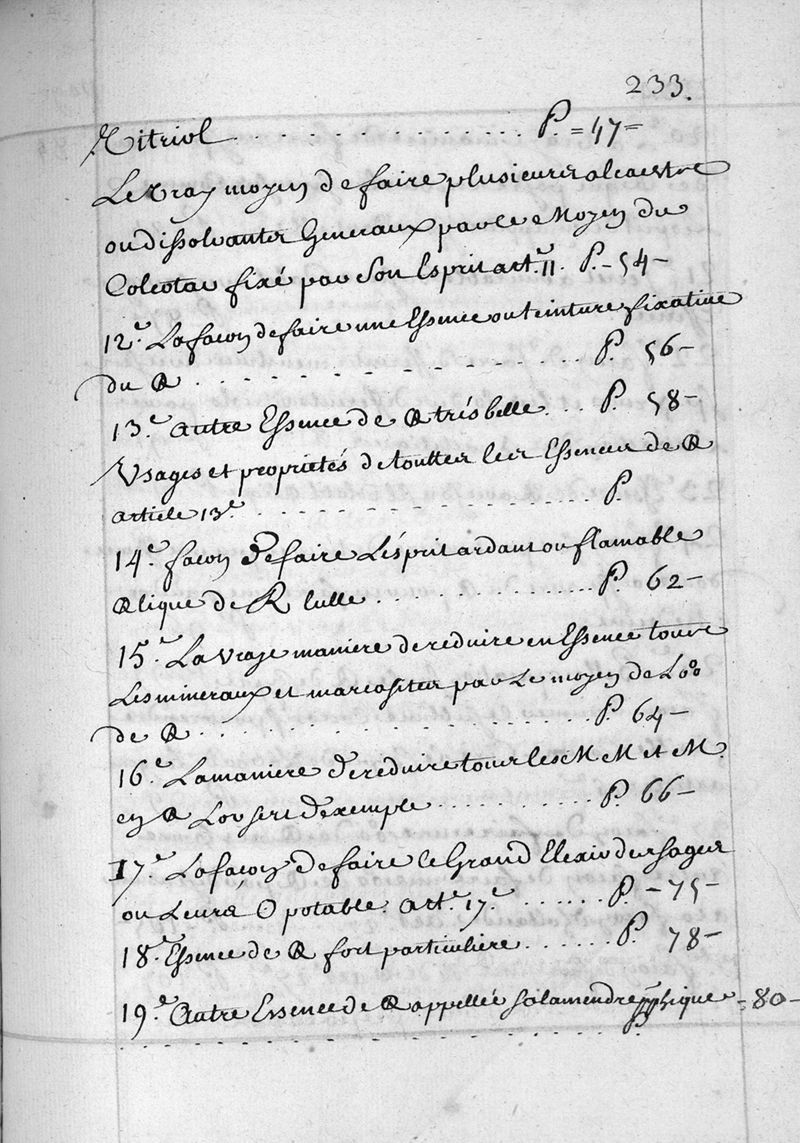 233.
Vitriol . . . . . . . . . . . . . . . P. = 47 =
Le vray moyen de faire plusieurs alcaestre
ou dissolvants Generaux par le Moyen du
Colcotar fixé par Son Esprit art.e 11. P. - 54 -
12.e La façon de faire une Essence ou teinture fixative
du . . . . . . . . . . . . . . . P. 56 -
13.e autre Essence de très belle . . . P. 58 -
Usages et proprietés de touttes les Essences de
article 13.e . . . . . . . . . . . . . . . P.
14.e façon De faire L'esprit ardant ou flamable
lique de R lulle . . . . . . . . . . . . . . . P. 62 -
15.e La vraye maniere de reduire en Essence tours
Les mineraux et marcasites par Le moyen de L
de . . . . . . . . . . . . . . . P. 64 -
16.e La maniere de reduire tous les M M et M.
en L'or sert d'exemple . . . . . . . . . . P. 66 -
17.e La façon de faire le Grand Elexir des sages
ou Leurs O potable. art.e 17.e . . . . . . P. - 75 -
18.e Essence de fort particuliere . . . . . . P. 78 -
19.e Autre Essence de appellée salamendre phique - 80 -
. . . . . . . . . . . . . . . P